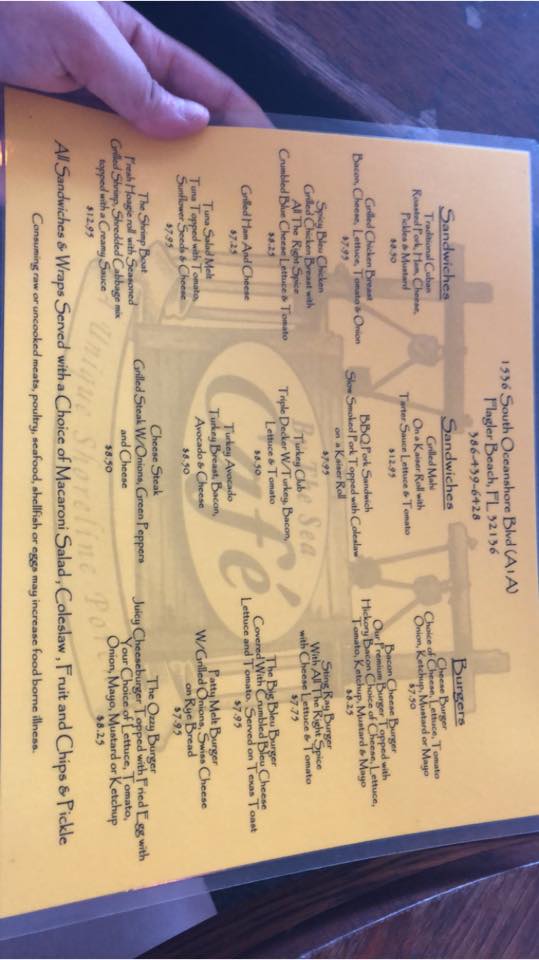 1936 South Oceanshore Blvd (A1A)
Flagler Beach, FL 32136
386-439-6428
Sandwiches
Traditional Cuban
Roasted Pork, Ham, Cheese,
Pickles & Mustard
$8.50
Grilled Chicken Breast
Bacon, Cheese, Lettuce, Tomato & Onion
$7.95
Spicy Bleu Chicken
Grilled Chicken Breast with
All The Right Spice
Crumbled Blue Cheese Lettuce & Tomato
$8.25
Grilled Ham And Cheese
$7.25
Tuna Salad Melt
Tuna Topped with Tomato,
Sunflower Seeds & Cheese
$7.95
The Shrimp Boat
Fresh Hoagie roll with Seasoned
Grilled Shrimp, Shredded Cabbage mix
topped with a Creamy Sauce
$12.95
Sandwiches
Grilled Mahi
On a Kaiser Roll with
Tarter Sauce, Lettuce & Tomato
$12.95
BBQ Pork Sandwich
Slow Smoked Pork Topped with Coleslaw
on a Kaiser Roll
$7.95
Turkey Club
Triple Decker W/Turkey, Bacon,
Lettuce & Tomato
$8.50
Turkey Avocado
Turkey Breast, Bacon,
Avocado & Cheese
$8.50
Cheese Steak
Grilled Steak W/Onions, Green Peppers
and Cheese
$8.50
Burgers
Cheese Burger
Choice of Cheese, Lettuce, Tomato
Onion, Ketchup, Mustard or Mayo
$7.50
Bacon Cheese Burger
Our Premium Burger Topped with
Hickory Bacon, Choice of Cheese, Lettuce,
Tomato, Ketchup, Mustard & Mayo
$8.25
Sting Ray Burger
With All The Right Spice
with Cheese Lettuce & Tomato
$7.75
The Big Bleu Burger
Covered With Crumbled Bleu Cheese
Lettuce and Tomato, Served on Texas Toast
$7.95
Patty Melt Burger
W/Grilled Onions, Swiss Cheese
on Rye Bread
$7.95
The Ozzy Burger
Juicy Cheeseburger Topped with Fried Egg with
Your Choice of Lettuce, Tomato,
Onion, Mayo, Mustard or Ketchup
$8.25
All Sandwiches & Wraps Served with a Choice of Macaroni Salad, Coleslaw, Fruit and Chips & Pickle
Consuming raw or uncooked meats, poultry, seafood, shellfish or eggs may increase food borne illness.
The Sea
Café
Unique